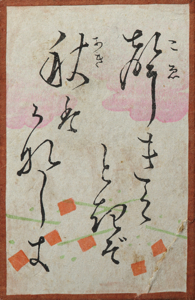 聲きく
こゑ
ときぞ
秋は
あき
かなしき